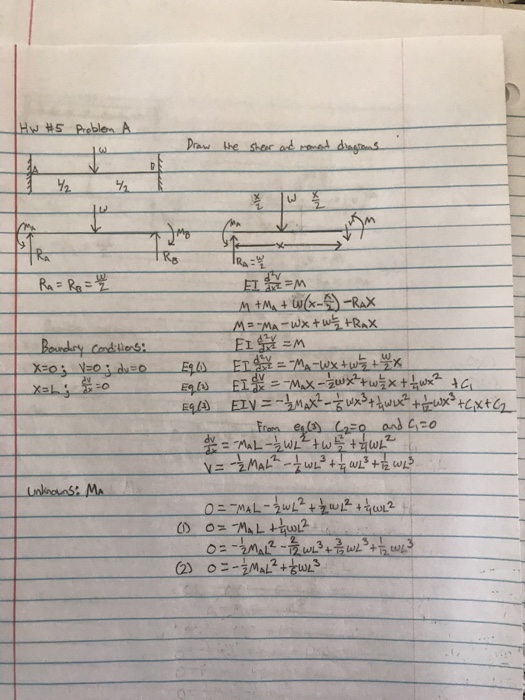 HW #5 Problem A
Draw the shear and moment diagrams
W
A B
L/2 L/2
W
MA MB
RA RB
x/2 W x/2
MA M V
x
RA = W/2
RA = RB = W/2
EI d²v/dx² = M
M + MA + W(x - L/2) - RAx
M = -MA - Wx + W L/2 + RAx
Boundry Conditions:
EI d²v/dx² = M
x=0; V=0; dv=0
Eq(1) EI d²v/dx² = -MA - Wx + W L/2 + W/2 x
x=L; dv/dx =0
Eq(2) EI dv/dx = -MAx - 1/2 wx² + w L/2 x + 1/4 wx² + C1
Eq(3) EIV = -1/2 MAx² - 1/6 wx³ + 1/4 wLx² + 1/12 wx³ + C1x + C2
From eq(3) C2=0 and C1=0
dv/dx = -MAL - 1/2 WL² + W L²/2 + 1/4 WL²
V = -1/2 MAL² - 1/6 WL³ + 1/4 WL³ + 1/12 WL³
Unknowns: MA
0 = -MAL - 1/2 WL² + 1/2 WL² + 1/4 WL²
(1) 0 = -MAL + 1/4 WL²
0 = -1/2 MAL² - 2/12 WL³ + 3/12 WL³ + 1/12 WL³
(2) 0 = -1/2 MAL² + 1/6 WL³